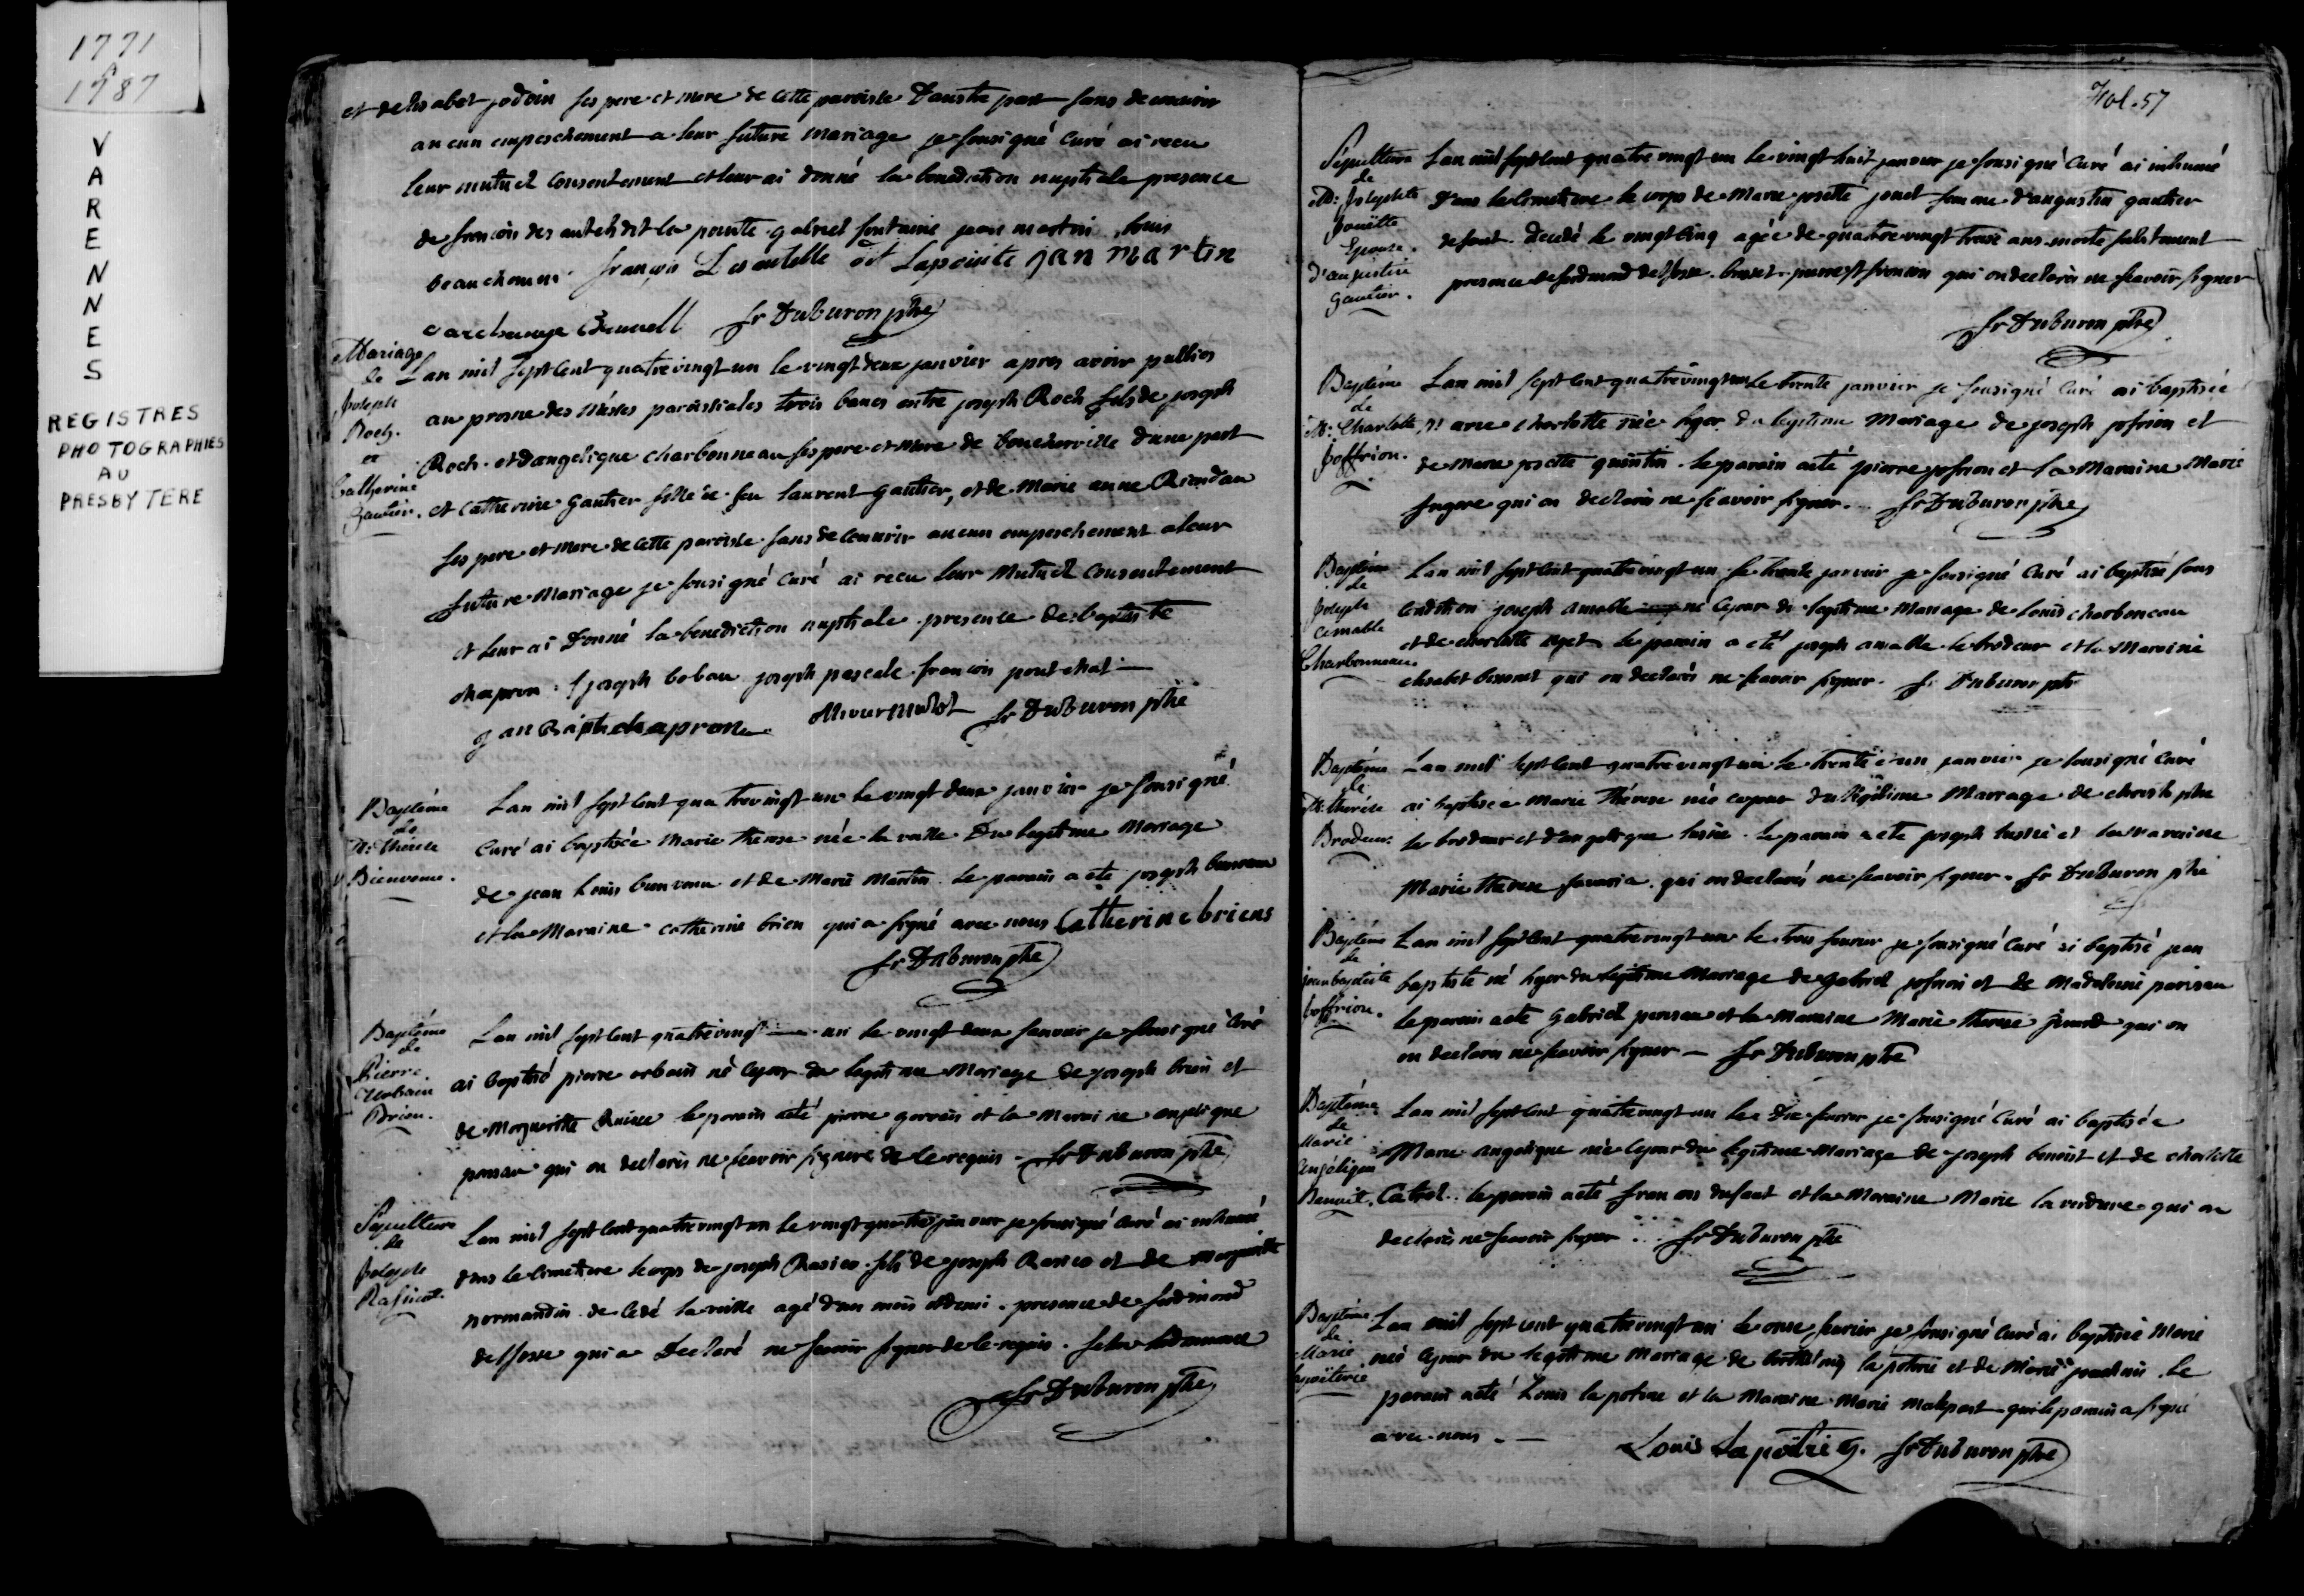 1771
à
1787
VARENNES
REGISTRES
PHOTOGRAPHIES
AU
PRESBYTERE
et delisabet jodoin ses pere et mere de cette paroisse d'austre part sans decouvrir
aucun empeschement a leur future mariage je sousigné Curé ai recu
leur mutuel consentement et leur ai donné la benediction nuptiale presence
de francois des autels dit la pointe gabriel fontaine jean martin louis
beauchemin françois Desautelle dit Lapointe jan martin
archange Brunell fr Duburon ptre
Mariage
de
Joseph
Roch.
et
Catherine
Gautier.
Lan mil sept cent quatre vingt un le vingt deux janvier apres avoir publies
au prosne des Messes paroissiales trois bancs entre joseph Roch fils de joseph
Roch et dangelique charbonneau ses pere et mere de boucherville d'une part
et Catherine Gautier fille de feu laurent Gautier, et de Marie anne Riendau
ses pere et mere de cette paroisse sans decouvrir aucun empeschement a leur
future Mariage je sousigné Curé ai recu leur Mutuel consentement
et leur ai Donné la benediction nuptiale presence de baptiste
chapron joseph bobau joseph pascale francois pont chat
jan Baptis chapron fr Duburon ptre
Baptême
de
M: thérèse
Bienvenu.
Lan mil sept cent quatre vingt un le vingt deux janvier je sousigné
Curé ai baptisée Marie therese née la veille Du legitime Mariage
de jean Louis bienvenu et de Marie Martin le parain a ete joseph bienvenu
et la Maraine catherine brien qui a signé avec nous Catherine briens
fr Duburon ptre
Baptême
de
Pierre
Urbain
Brien.
Lan mil sept cent quatre vingt un le vingt deux janvier je sousigné Curé
ai baptisé pierre urbain né ce jour du legitime Mariage de joseph brien et
de Morguerithe le parain a eté pierre gervais et la Maraine anplique
qui on declarés ne scavoir signere de le requis fr Duburon ptre
Sépulture
de
Joseph
Rasicot.
Lan mil sept cent quatre vingt un le vingt quatre janvier je sousigné Curé ai inhumé
dans le cimetiere le corps de joseph Rasico fils de joseph Rasico et de Morguerithe
normandin decedé la veille agé d'un mois et demi presence de
delfosse qui a Declaré ne scavoir signer de le requis selon lordonnance
fr Duburon ptre
Fol. 57
Sépulture
de
M: Josephte
Jouëtte
Epouse
d'augustin
Gautier.
Lan mil sept cent quatre vingt un le vingt huit janvier je sousigné Curé ai inhumé
dans le cimetiere le corps de Marie josette jouet femme d'augustin gautier
defunt decedé le vingt cinq agée de quatre vingt treise ans morte subitement
presence de delfosse qui on declarés ne scavoir signer
fr Duburon ptre
Baptême
de
M: Charlotte
Joffrion.
Lan mil sept cent quatre vingt un le trente janvier je sousigné Curé ai baptisée
Marie charlotte née hyer du legitime Mariage de joseph jofrion et
de Marie josette quintin le parain a eté pierre jofrion et la Maraine Marie
qui on declarés ne scavoir signer. fr Duburon ptre
Baptême
de
Joseph
Amable
Charbonneau.
Lan mil sept cent quatre vingt un le trente janvier je sousigné Curé ai baptisé sous
condition joseph amable né ce jour du legitime Mariage de louis charbonneau
et de charlotte le parain a eté joseph amable le brodeur et la Maraine
elisabet qui on declarés ne scavoir signer fr Duburon ptre
Baptême
de
M: thérèse
Brodeur.
Lan mil sept cent quatre vingt un le trente et un janvier je sousigné Curé
ai baptisée Marie thérese née ce jour du legitime Mariage de christophe
le brodeur et d'angelique le parain a ete joseph et la Maraine
Marie therese savaria qui on declarés ne scavoir signer fr Duburon ptre
Baptême
de
jean baptiste
Joffrion.
Lan mil sept cent quatre vingt un le trois fevrier je sousigné Curé ai baptisé jean
baptiste né hyer du legitime Mariage de gabriel jofrion et de Madeleine
le parain a ete Gabriel et la Maraine Marie therese qui on
on declarés ne scavoir signer fr Duburon ptre
Baptême
de
Marie
Angélique
Benoit.
Lan mil sept cent quatre vingt un le dix fevrier je sousigné Curé ai baptisée
Marie angelique née ce jour du legitime Mariage de joseph benoist et de charlotte
le parain a eté francois dufaut et la Maraine Marie la verdure qui on
declarés ne scavoir signer fr Duburon ptre
Baptême
de
Marie
lapoiterie
Lan mil sept cent quatre vingt un le onse fevrier je sousigné Curé ai baptisée Marie
née ce jour du legitime Mariage de la potrie et de Marie le
parain a eté Louis la potrie et la Maraine Marie Malepart qui le parain a signé
avec nous
Louis La potrie fr Duburon ptre